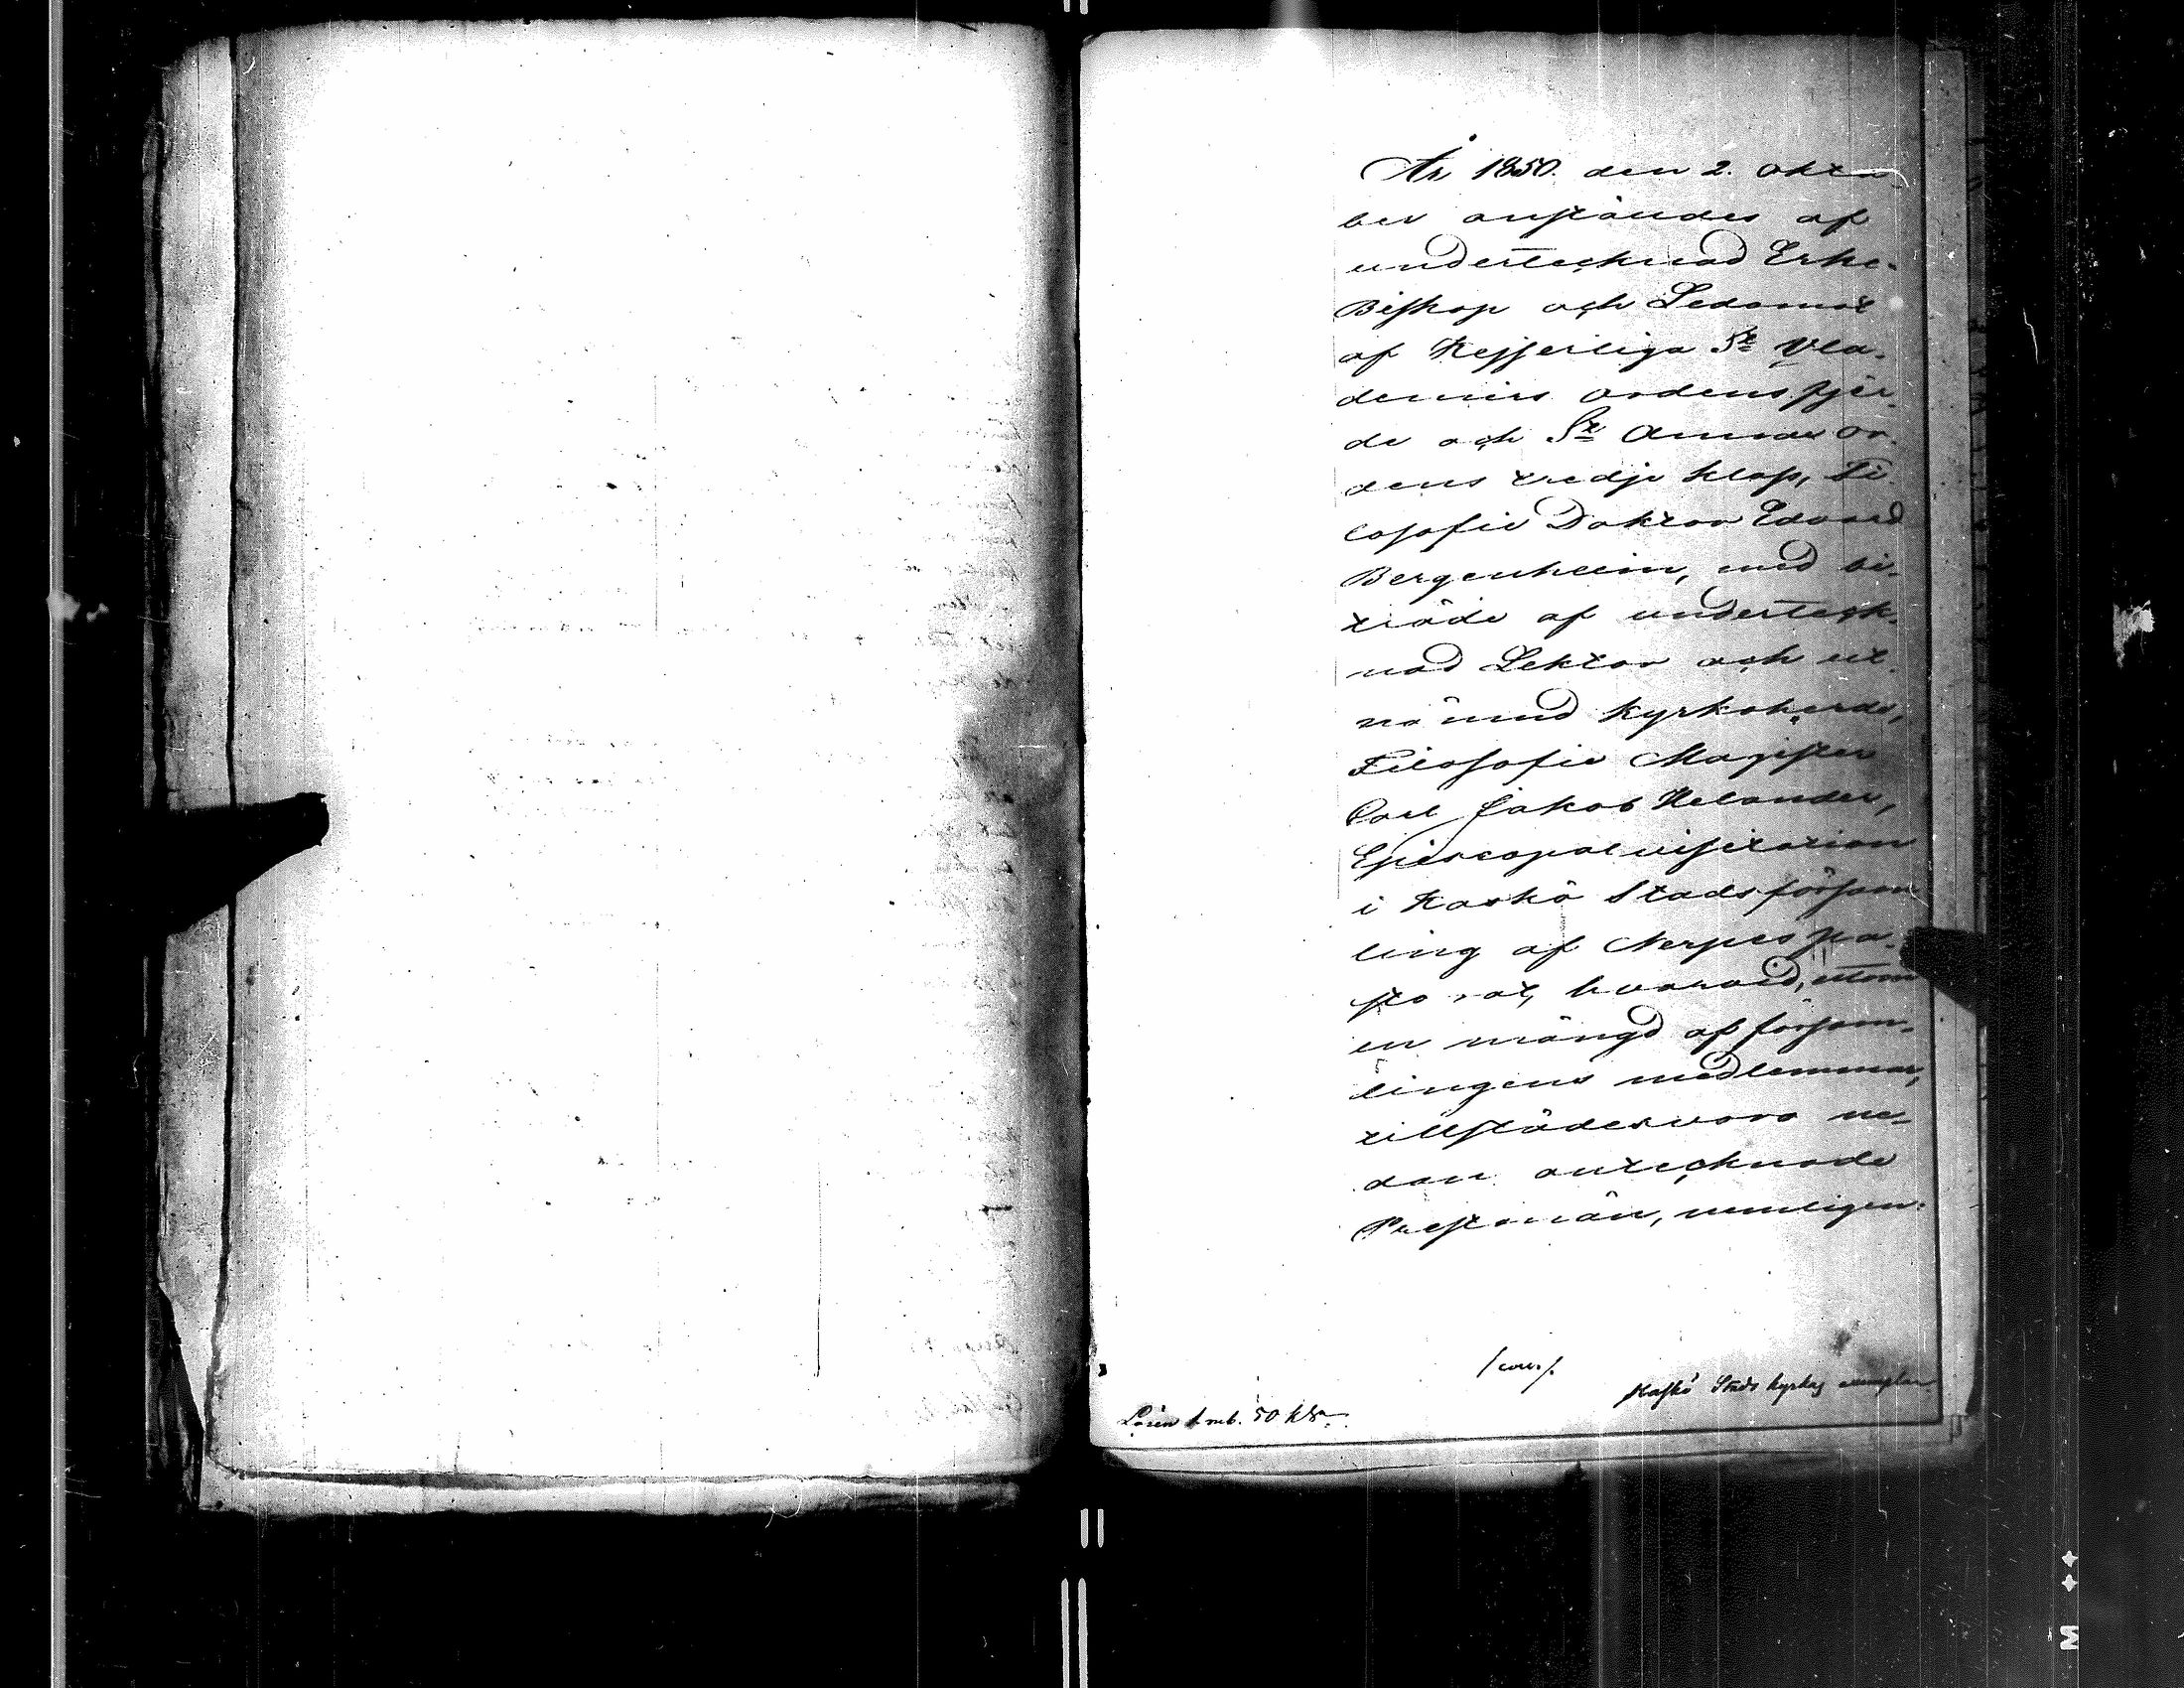 År 1850. den 2. Okto-
ber anstäldes af
undertecknad Erke-
Biskop och Ledamot
af Kejserliga St Vla-
demirs Ordens fjer-
de och St Annae Or-
dens tredje klass, Fi-
losofie Doktor Edvard
Bergenheim, med bi-
träde af underteck-
nad Lektor och ut-
nämnd Kyrkoherde,
Filosofie Magister
Carl Jakob Helander,
Episcopalvisitation
i Kaskö Stads försam-
ling af Nerpes pa-
storat, hvarvid, utom
en mängd af försam-
lingens medlemmar,
tillstädesvoro ne-
dan antecknade
Prestmän, nemligen:
Kaskö Stads kyrkas exemplar
Lösen 50